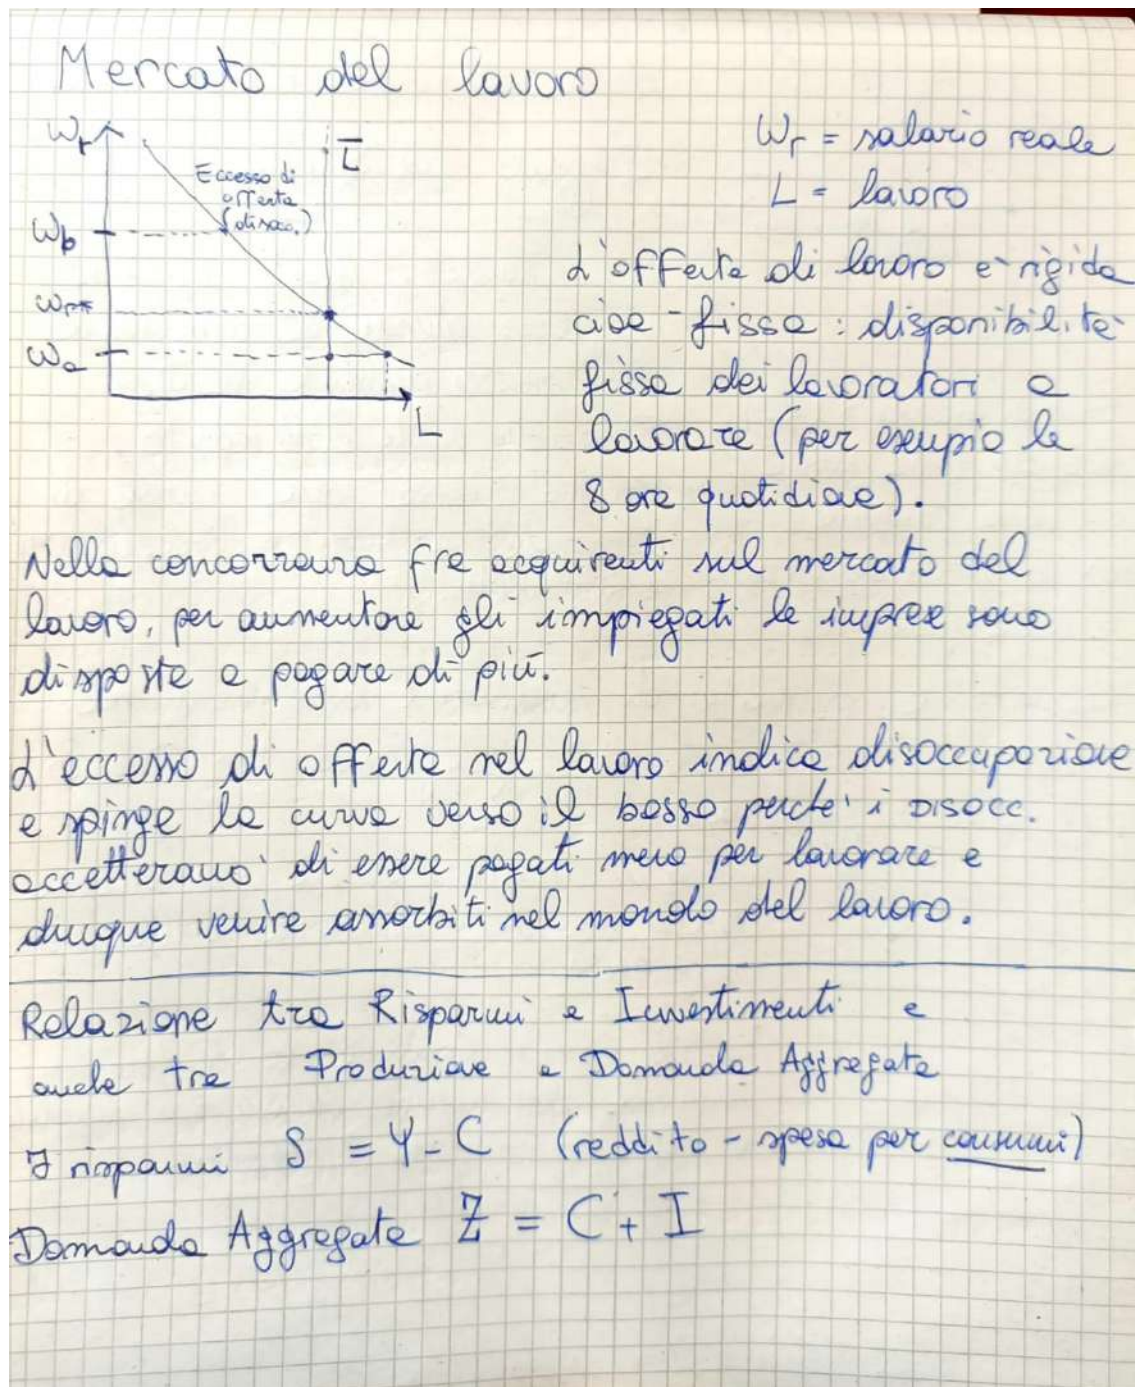 Mercato del lavoro
Wr
L̅
Eccesso di
offerta
(disocc.)
Wb
Wr*
Wa
L
Wr = salario reale
L = lavoro
L'offerta di lavoro è rigida
cioè fissa: disponibilità
fissa dei lavoratori a
lavorare (per esempio le
8 ore quotidiane).
Nella concorrenza fra acquirenti sul mercato del
lavoro, per aumentare gli impiegati le imprese sono
disposte a pagare di più.
L'eccesso di offerta nel lavoro indica disoccupazione
e spinge la curva verso il basso perché i DISOCC.
accetteranno di essere pagati meno per lavorare e
dunque venire assorbiti nel mondo del lavoro.
Relazione tra Risparmi e Investimenti e
anche tra Produzione e Domanda Aggregata
I risparmi S = Y - C (reddito - spesa per consumi)
Domanda Aggregata Z = C + I